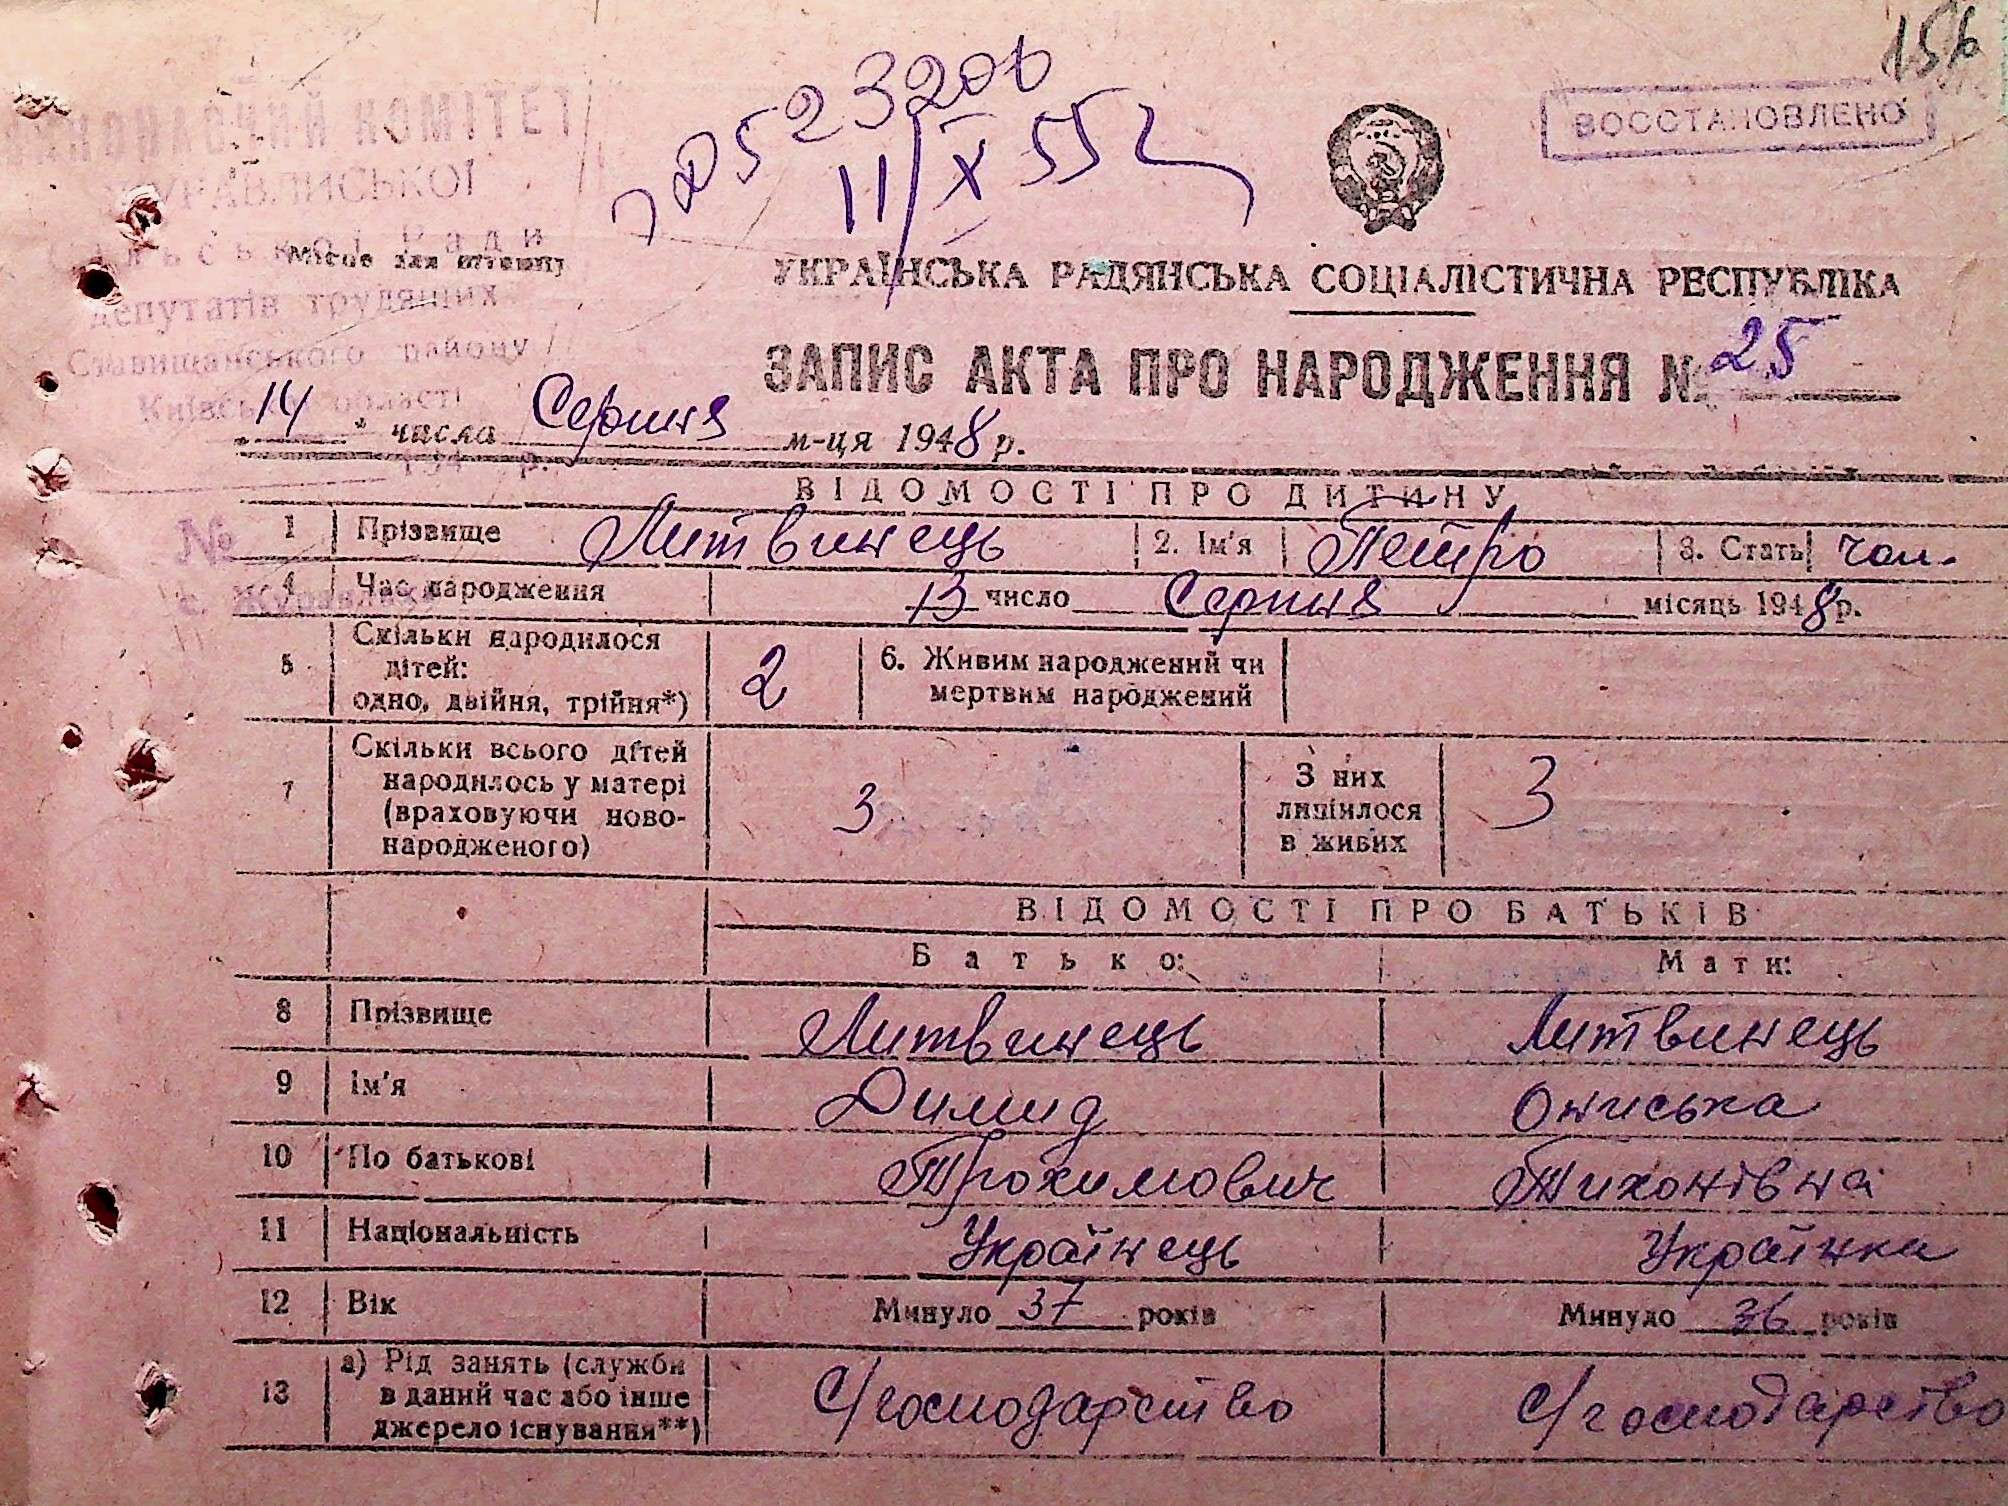 156
ВОССТАНОВЛЕНО
КОМІТЕТ
ЖУРАВЛИСЬКОЇ
Сільської Ради
депутатів трудящих
Ставищанського району
Київської області
194 р.
№
с. Журавлиха
Місце для штампу
11/X 55 г
УКРАЇНСЬКА РАДЯНСЬКА СОЦІАЛІСТИЧНА РЕСПУБЛІКА
ЗАПИС АКТА ПРО НАРОДЖЕННЯ № 25
"14" числа Серпня м-ця 1948 р.
ВІДОМОСТІ ПРО ДИТИНУ
1 Прізвище Литвинець 2. Ім'я Петро 3. Стать чол.
4 Час народження 13 число Серпня місяць 1948 р.
5 Скільки народилося дітей: одно, двійня, трійня*) 2 6. Живим народжений чи мертвим народжений
7 Скільки всього дітей народилось у матері (враховуючи ново-народженого) 3 З них лишилося в живих 3
ВІДОМОСТІ ПРО БАТЬКІВ
Батько: Мати:
8 Прізвище Литвинець Литвинець
9 Ім'я Димид Ониська
10 По батькові Трохимович Тихонівна
11 Національність Українець Українка
12 Вік Минуло 37 років Минуло 36 років
13 а) Рід занять (служби в даний час або інше джерело існування**) С/господарство С/господарство